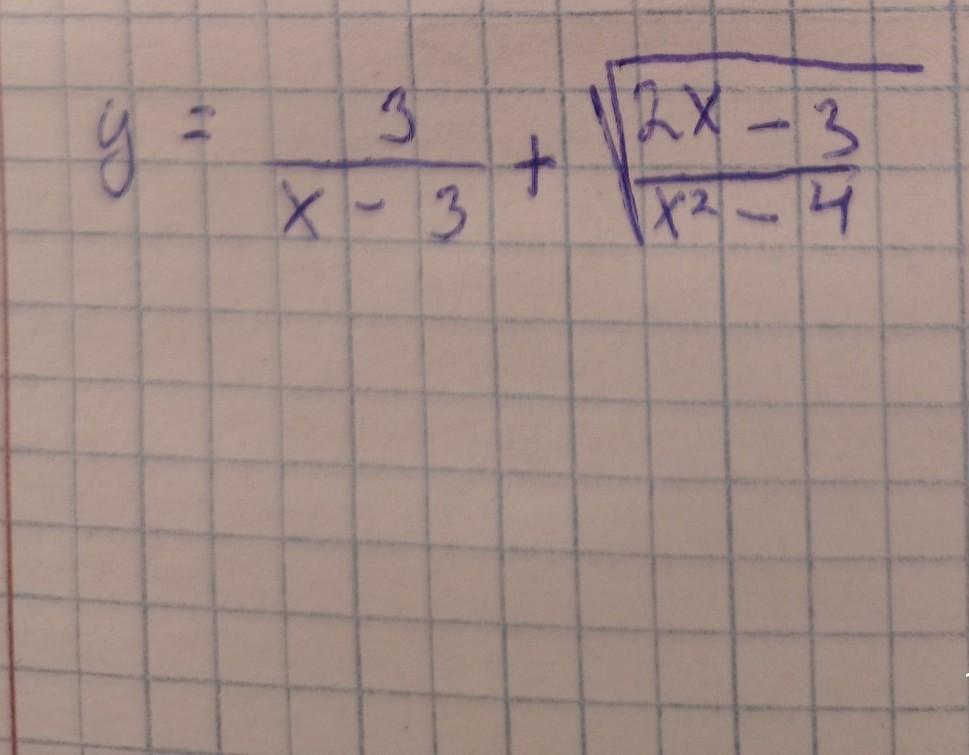 y = 3/(x - 3) + √((2x - 3)/(x² - 4))